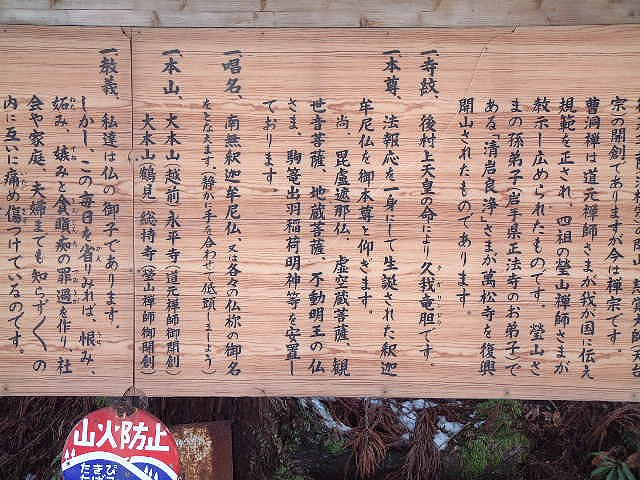 宗の開創でありますが今は禅宗です。
曹洞禅は道元禅師さまが我が国に伝え
規範を正され、四祖の瑩山禅師さまが
教示し広められたものです。瑩山さ
まの孫弟子(岩手県正法寺のお弟子)で
ある「清岩良浄」さまが萬松寺を復興
開山されたものであります。
一、寺紋、後村上天皇の命により久我竜胆です。
一、本尊、法報応を一身にして生誕された釈迦
牟尼仏を御本尊と仰ぎます。
尚、毘盧遮那仏、虚空蔵菩薩、観
世音菩薩、地蔵菩薩、不動明王の仏
さま、駒等出羽稲荷明神等を安置し
ております。
一、唱名、南無釈迦牟尼仏、又は各々の仏称の御名
をとなえます。(静かに手を合わせて低頭しましょう)
一、本山、大本山越前 永平寺(道元禅師御開創)
大本山鶴見 総持寺(瑩山禅師御開創)
一、教義、私達は仏の御子であります。
しかし、この毎日を省りみれば、恨み、
妬み、嫉みと貪瞋痴の罪過を作り、社
会や家庭、夫婦までも知らず〱の
内に互いに痛め傷つけているのです。
山火防止
たきび
たばこ